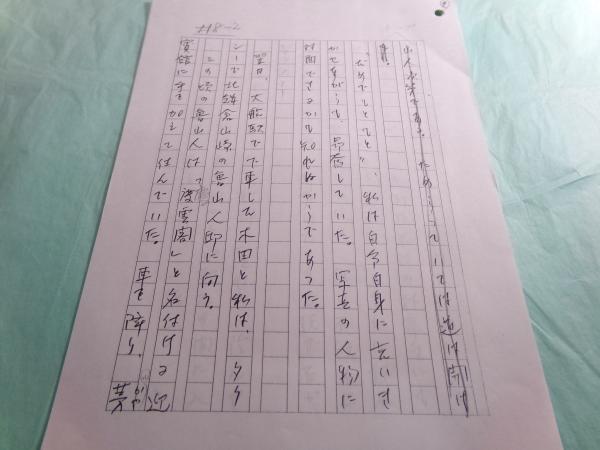 #8-2
ない。
"だめでもともと"、私は自分自身に言いき
かせながらも、昂奮していた。写真の人物に
対面できるかも知れないからであった。
翌日、大船駅で下車した木田と私は、タク
シーで北鎌倉山崎の魯山人邸に向う。
この頃の魯山人は、「慶雲閣」と名付ける迎
賓館に手を加えて住んでいた。車を降り、